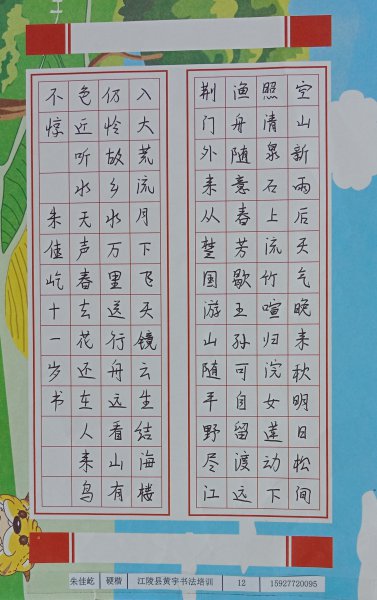 空山新雨后天气晚来秋明日松间
照清泉石上流竹喧归浣女莲动下
渔舟随意春芳歇王孙可自留渡远
荆门外来从楚国游山随平野尽江
入大荒流月下飞天镜云生结海楼
仍怜故乡水万里送行舟远看山有
色近听水无声春去花还在人来鸟
不惊 朱佳屹十一岁书
朱佳屹 硬楷 江陵县黄字书法培训 12 15927720095